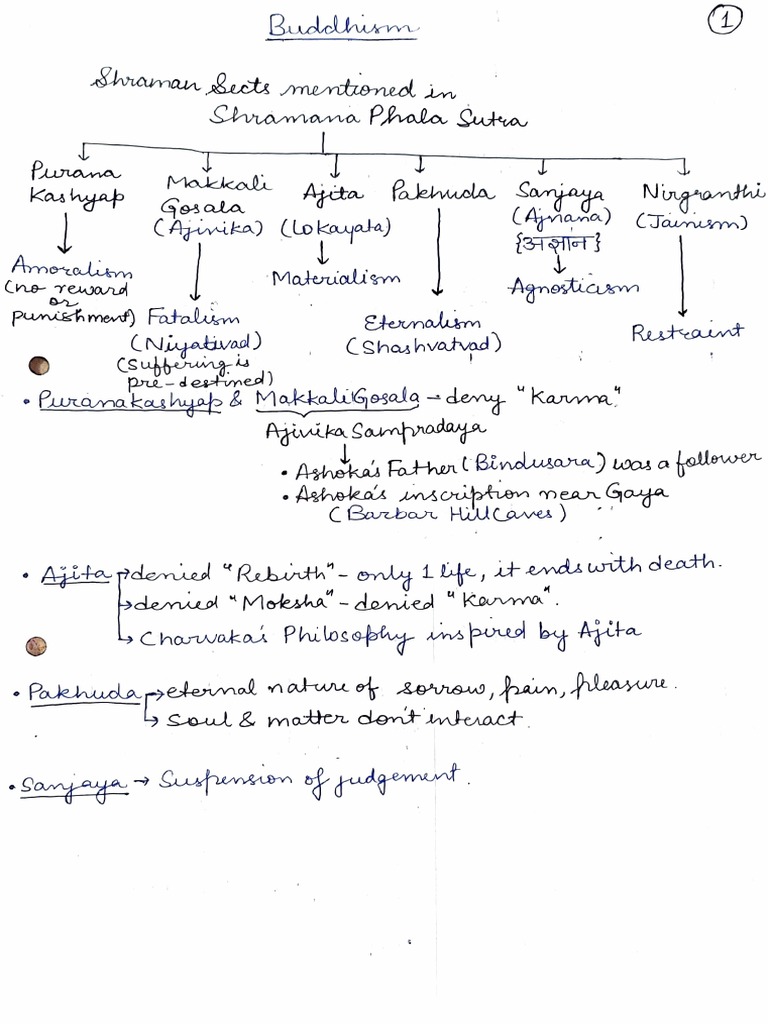 Buddhism
1
Shraman Sects mentioned in
Shramana Phala Sutra
Purana
Kashyap
Amoralism
(no reward
or
punishment)
Makkali
Gosala
(Ajivika)
Fatalism
(Niyativad)
(Suffering is
pre-destined)
Ajita
(Lokayata)
Materialism
Pakhuda
Eternalism
(Shashvatvad)
Sanjaya
(Ajnana)
{अज्ञान}
Agnosticism
Nirgranthi
(Jainism)
Restraint
• Purana Kashyap & Makkali Gosala → deny "Karma"
Ajivika Sampradaya
• Ashoka's Father (Bindusara) was a follower
• Ashoka's inscription near Gaya
(Barbar Hill Caves)
• Ajita → denied "Rebirth" - only 1 life, it ends with death.
→ denied "Moksha" - denied "Karma".
→ Charvaka's Philosophy inspired by Ajita
• Pakhuda → eternal nature of sorrow, pain, pleasure.
→ Soul & matter don't interact.
• Sanjaya → Suspension of judgement.